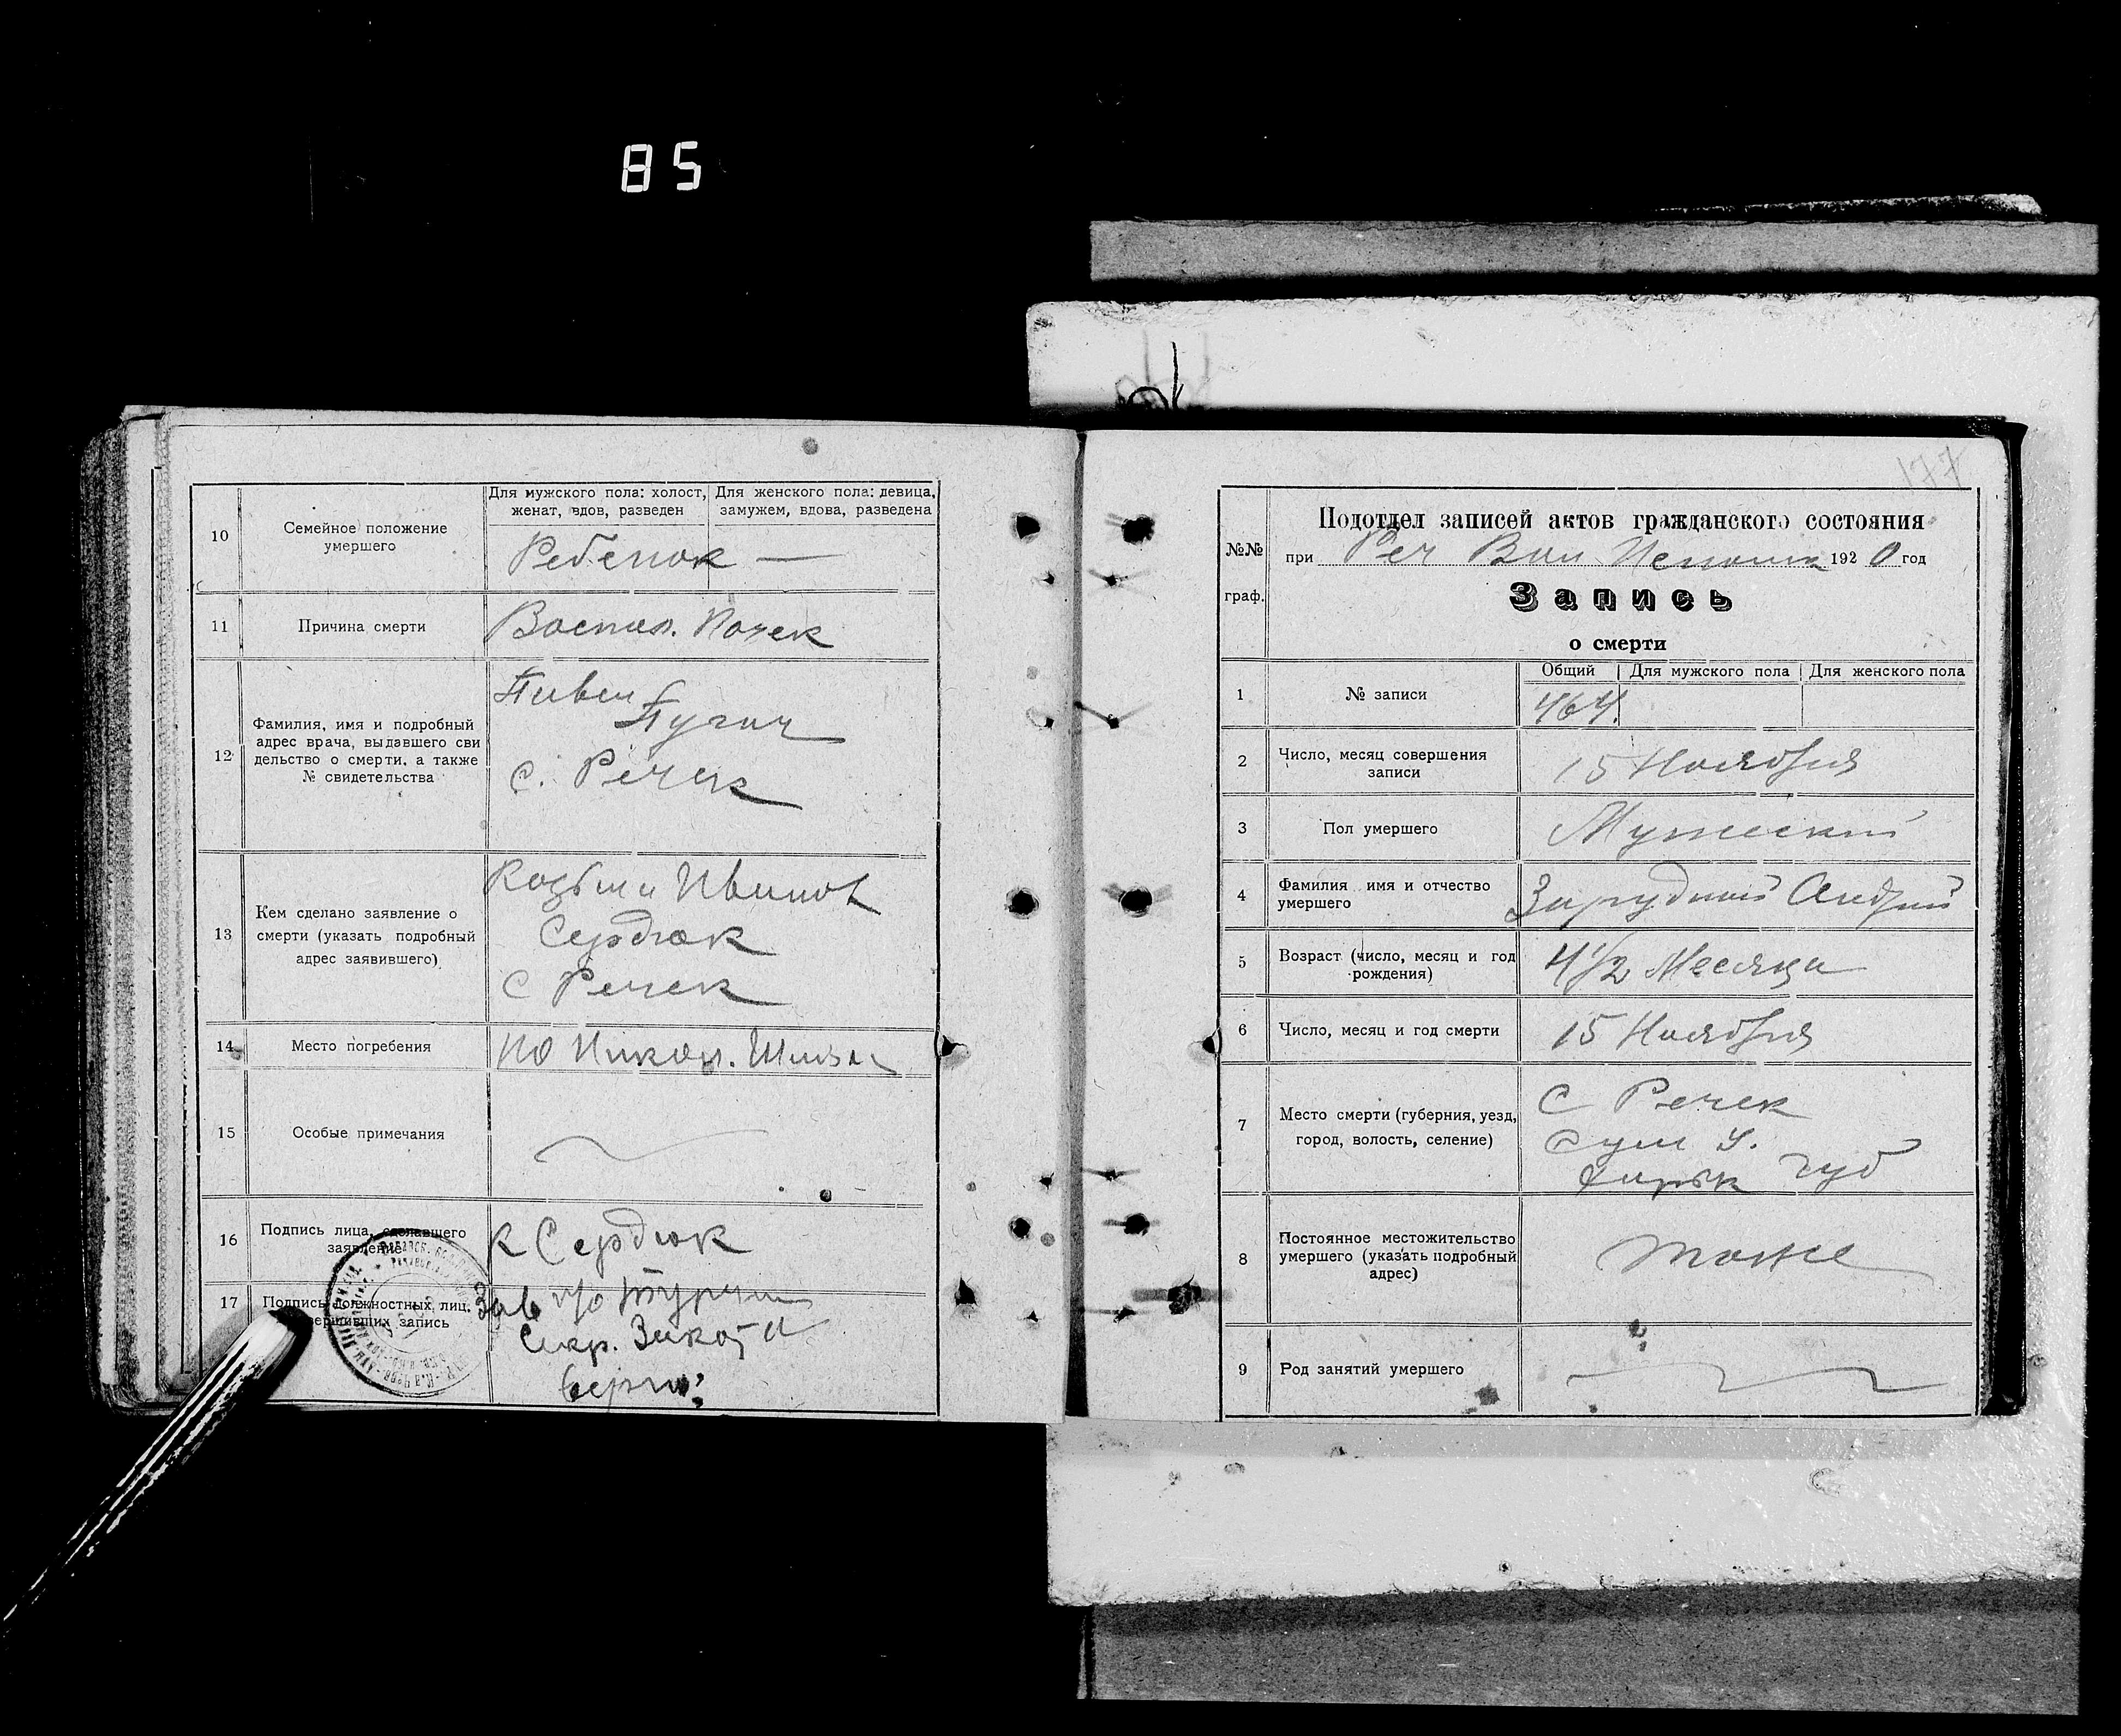 85
10
Семейное положение
умершего
Для мужского пола: холост,
женат, вдов, разведен
Для женского пола: девица,
замужем, вдова, разведена
Ребенок —
11
Причина смерти
Воспал. Почек
12
Фамилия, имя и подробный
адрес врача, выдавшего сви
дельство о смерти, а также
№ свидетельства
с. Речек
13
Кем сделано заявление о
смерти (указать подробный
адрес заявившего)
Козьма Иванов
Сердюк
с Речек
14
Место погребения
на Никол.
15
Особые примечания
16
Подпись лица, сделавшего
заявление
К Сердюк
17
Подпись должностных лиц,
совершивших запись
Зав п/о
Секр.
177
№№
граф.
Подотдел записей актов гражданского состояния
при Реч Вол Исполк 1920 год
Запись
о смерти
1
№ записи
Общий
Для мужского пола
Для женского пола
464.
2
Число, месяц совершения
записи
15 Ноября
3
Пол умершего
Мужеский
4
Фамилия имя и отчество
умершего
Зарудный Андрей
5
Возраст (число, месяц и год
рождения)
4 1/2 Месяца
6
Число, месяц и год смерти
15 Ноября
7
Место смерти (губерния, уезд,
город, волость, селение)
с Речек
Сум у.
Харьк губ
8
Постоянное местожительство
умершего (указать подробный
адрес)
тоже
9
Род занятий умершего